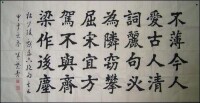 不薄今人
愛古人清
詞麗句必
為隣竊攀
屈宋宜方
駕恐與齊
梁作後塵